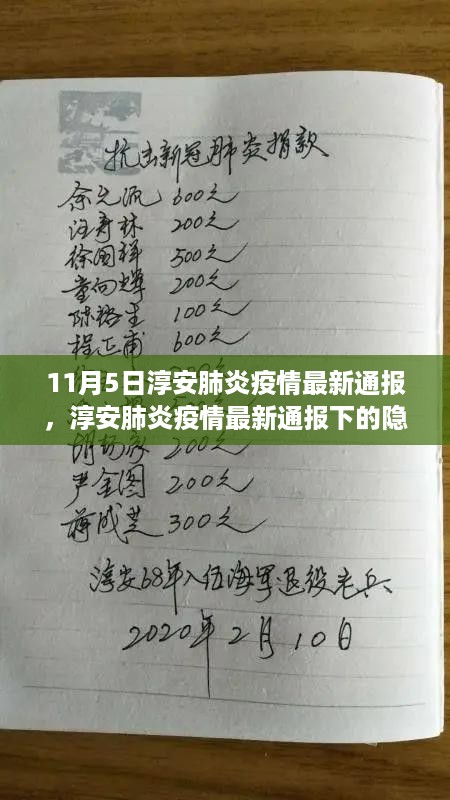 抗击新冠肺炎捐款
600元
汪寿林 200元
徐国祥 500元
童向辉 200元
陈裕生 100元
程正甫 600元
11月5日淳安肺炎疫情最新通报
，淳安肺炎疫情最新通报下的隐
200元
严金图 200元
蒋成芝 300元
淳安68年入伍海军退役老兵
2020年2月10日